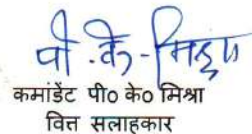 पी.के.मिश्रा
कमांडेंट पी० के० मिश्रा
वित्त सलाहकार